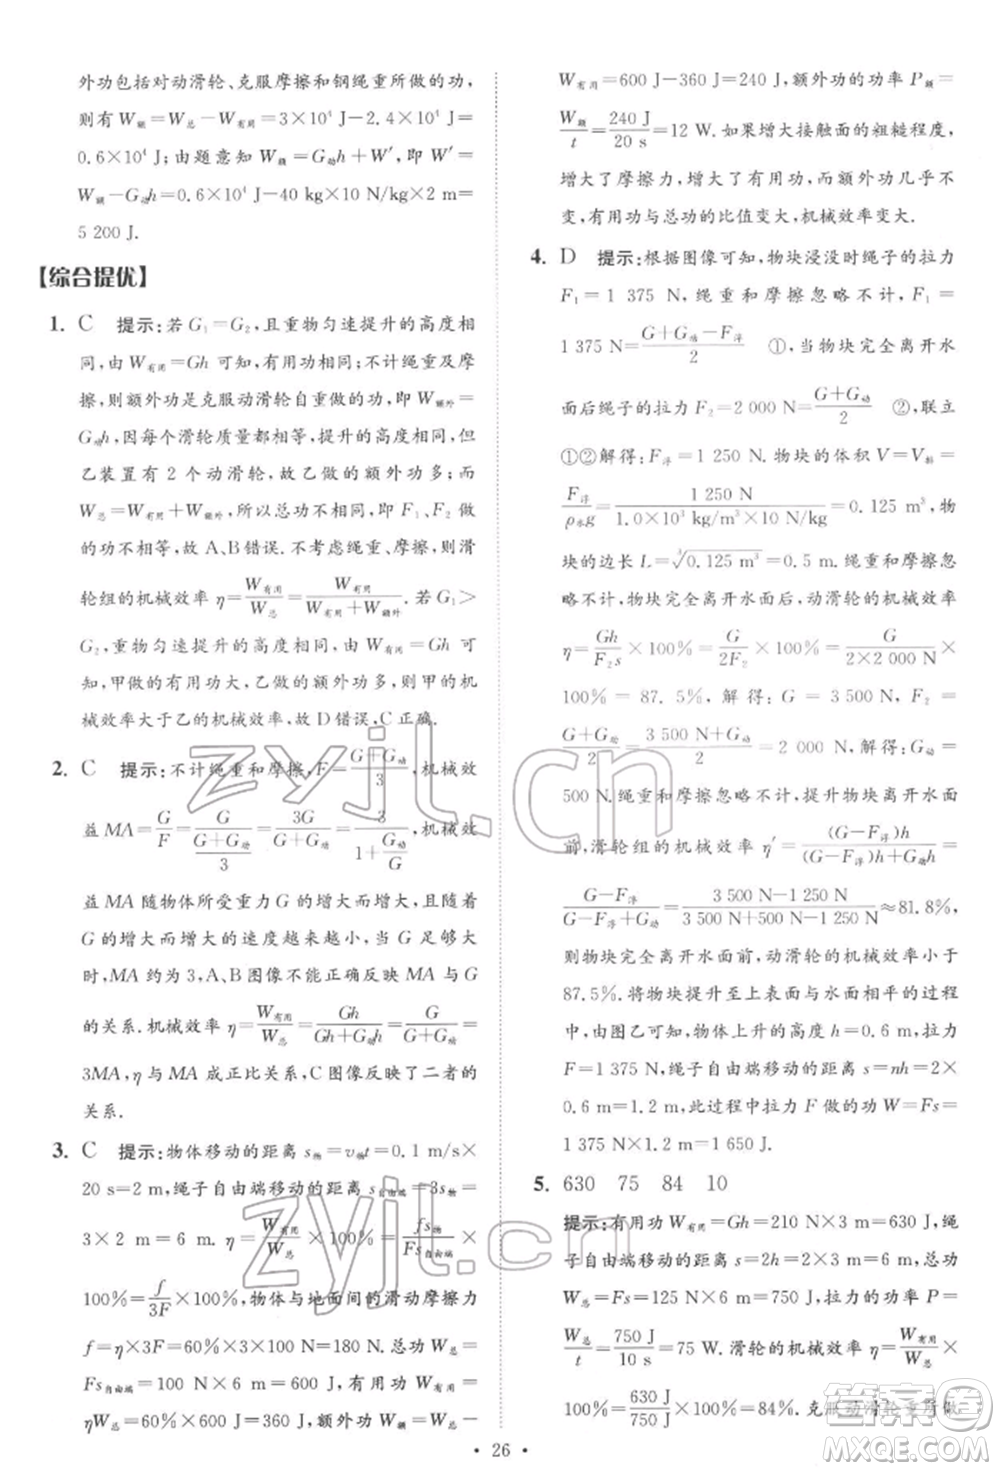 外功包括对动滑轮、克服摩擦和钢绳重所做的功,
则有 W额=W总-W有用=3×10⁴ J-2.4×10⁴ J=
0.6×10⁴ J;由题意知 W额=G动h+W′,即 W′=
W额-G动h=0.6×10⁴ J-40 kg×10 N/kg×2 m=
5 200 J.
【综合提优】
1. C 提示:若 G₁=G₂,且重物匀速提升的高度相
同,由 W有用=Gh 可知,有用功相同;不计绳重及摩
擦,则额外功是克服动滑轮自重做的功,即 W额外=
G动h,因每个滑轮质量都相等,提升的高度相同,但
乙装置有 2 个动滑轮,故乙做的额外功多;而
W总=W有用+W额外,所以总功不相等,即 F₁、F₂ 做
的功不相等,故 A、B 错误.不考虑绳重、摩擦,则滑
轮组的机械效率 η=W有用/W总=W有用/(W有用+W额外).若 G₁>
G₂,重物匀速提升的高度相同,由 W有用=Gh 可
知,甲做的有用功大,乙做的额外功多,所以甲的机
械效率大于乙的机械效率,故 D 错误,C 正确.
2. C 提示:不计绳重和摩擦,F=(G+G动)/3,机械效
益 MA=G/F=G/((G+G动)/3)=3G/(G+G动)=3/(1+G动/G),机械效
益 MA 随物体所受重力 G 的增大而增大,且随着
G 的增大而增大的速度越来越小,当 G 越来越大
时,MA 约为 3,A、B 图像不能正确反映 MA 与 G
的关系.机械效率 η=W有用/W总=Gh/(Gh+G动h)=G/(G+G动)=
3MA,η 与 MA 成正比关系,C 图像反映了二者的
关系.
3. C 提示:物体移动的距离 s物=v物t=0.1 m/s×
20 s=2 m,绳子自由端移动的距离 s自由端=3s物=
3×2 m=6 m. η=W有用/W总=fs物/Fs自由端×
100%=f/3F×100%,物体与地面间的滑动摩擦力
f=η×3F=60%×3×100 N=180 N.总功 W总=
Fs自由端=100 N×6 m=600 J,有用功 W有用=
ηW总=60%×600 J=360 J,额外功 W额=W总-
W有用=600 J-360 J=240 J,额外功的功率 P额=
W额/t=240 J/20 s=12 W.如果增大接触面的粗糙程度,
增大了摩擦力,增大了有用功,而额外功几乎不
变,有用功与总功的比值变大,机械效率变大.
4. D 提示:根据图像可知,物块浸没时绳子的拉力
F₁=1 375 N,绳重和摩擦忽略不计,F₁=
1 375 N=(G+G动-F浮)/2 ①,当物块完全离开水
面后绳子的拉力 F₂=2 000 N=(G+G动)/2 ②,联立
①②解得:F浮=1 250 N.物块的体积 V=V排=
F浮/ρ水g=1 250 N/(1.0×10³ kg/m³×10 N/kg)=0.125 m³,物
块的边长 L=∛0.125 m³=0.5 m.绳重和摩擦忽
略不计,物块完全离开水面后,动滑轮的机械效率
η=Gh/F₂s×100%=G/2F₂×100%=G/(2×2 000 N)×
100%=87.5%,解得:G=3 500 N,F₂=
(G+G动)/2=(3 500 N+G动)/2=2 000 N,解得:G动=
500 N.绳重和摩擦忽略不计,提升物块离开水面
前,滑轮组的机械效率 η′=(G-F浮)h/((G-F浮)h+G动h)=
(G-F浮)/(G-F浮+G动)=(3 500 N-1 250 N)/(3 500 N+500 N-1 250 N)≈81.8%,
则物块完全离开水面前,动滑轮的机械效率小于
87.5%.将物块提升至上表面与水面相平的过程
中,由图乙可知,物体上升的高度 h=0.6 m,拉力
F=1 375 N,绳子自由端移动的距离 s=nh=2×
0.6 m=1.2 m,此过程中拉力 F 做的功 W=Fs=
1 375 N×1.2 m=1 650 J.
5. 630 75 84 10
提示:有用功 W有用=Gh=210 N×3 m=630 J,绳
子自由端移动的距离 s=2h=2×3 m=6 m,总功
W总=Fs=125 N×6 m=750 J,拉力的功率 P=
W总/t=750 J/10 s=75 W.滑轮的机械效率 η=W有用/W总×
100%=630 J/750 J×100%=84%.克服动滑轮重所做
• 26 •
zyjl.cn
zyjl.cn
答案圈
MXQE.COM